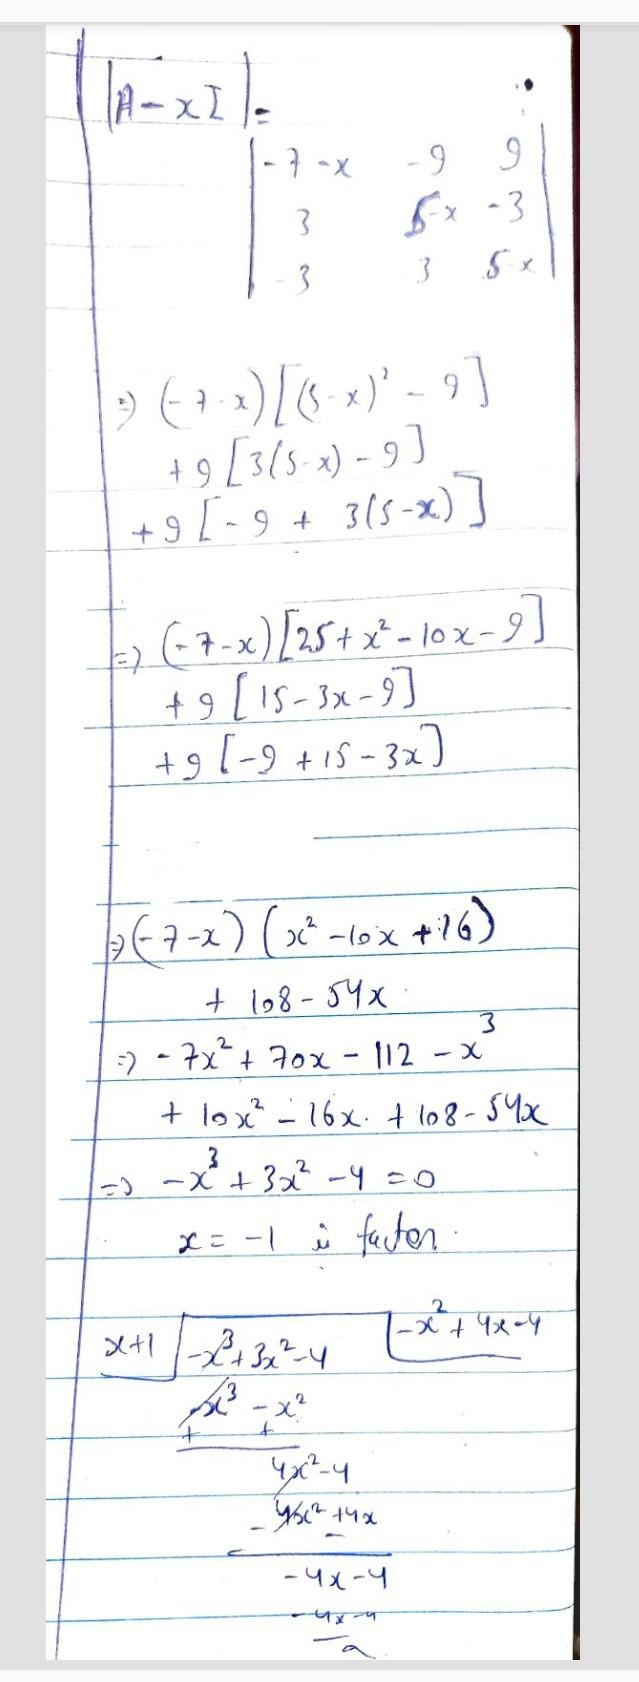 |A-xI| =
|-7-x -9 9|
|3 5-x -3|
|-3 3 5-x|
=) (-7-x)[(5-x)² - 9]
+9[3(5-x)-9]
+9[-9 + 3(5-x)]
=) (-7-x)[25+x²-10x-9]
+9[15-3x-9]
+9[-9+15-3x]
=) (-7-x)(x²-10x+16)
+ 108-54x
=) -7x²+70x-112-x³
+ 10x²-16x. +108-54x
=) -x³+3x²-4=0
x=-1 is factor.
x+1 -x³+3x²-4 -x²+4x-4
-x³ -x²
+ +
4x²-4
4x²+4x
- -
-4x-4
-4x-4